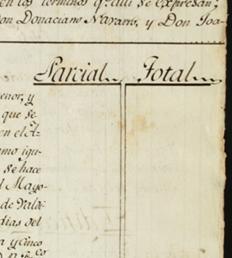 en los terminos q.e alli se expresan;
on Donaciano Navarro, y Don Joa-
Parcial Total
enor, y
que se
en el A-
mo iqu-
se hace
l Mayo-
de Valde
dias del
n y cinco